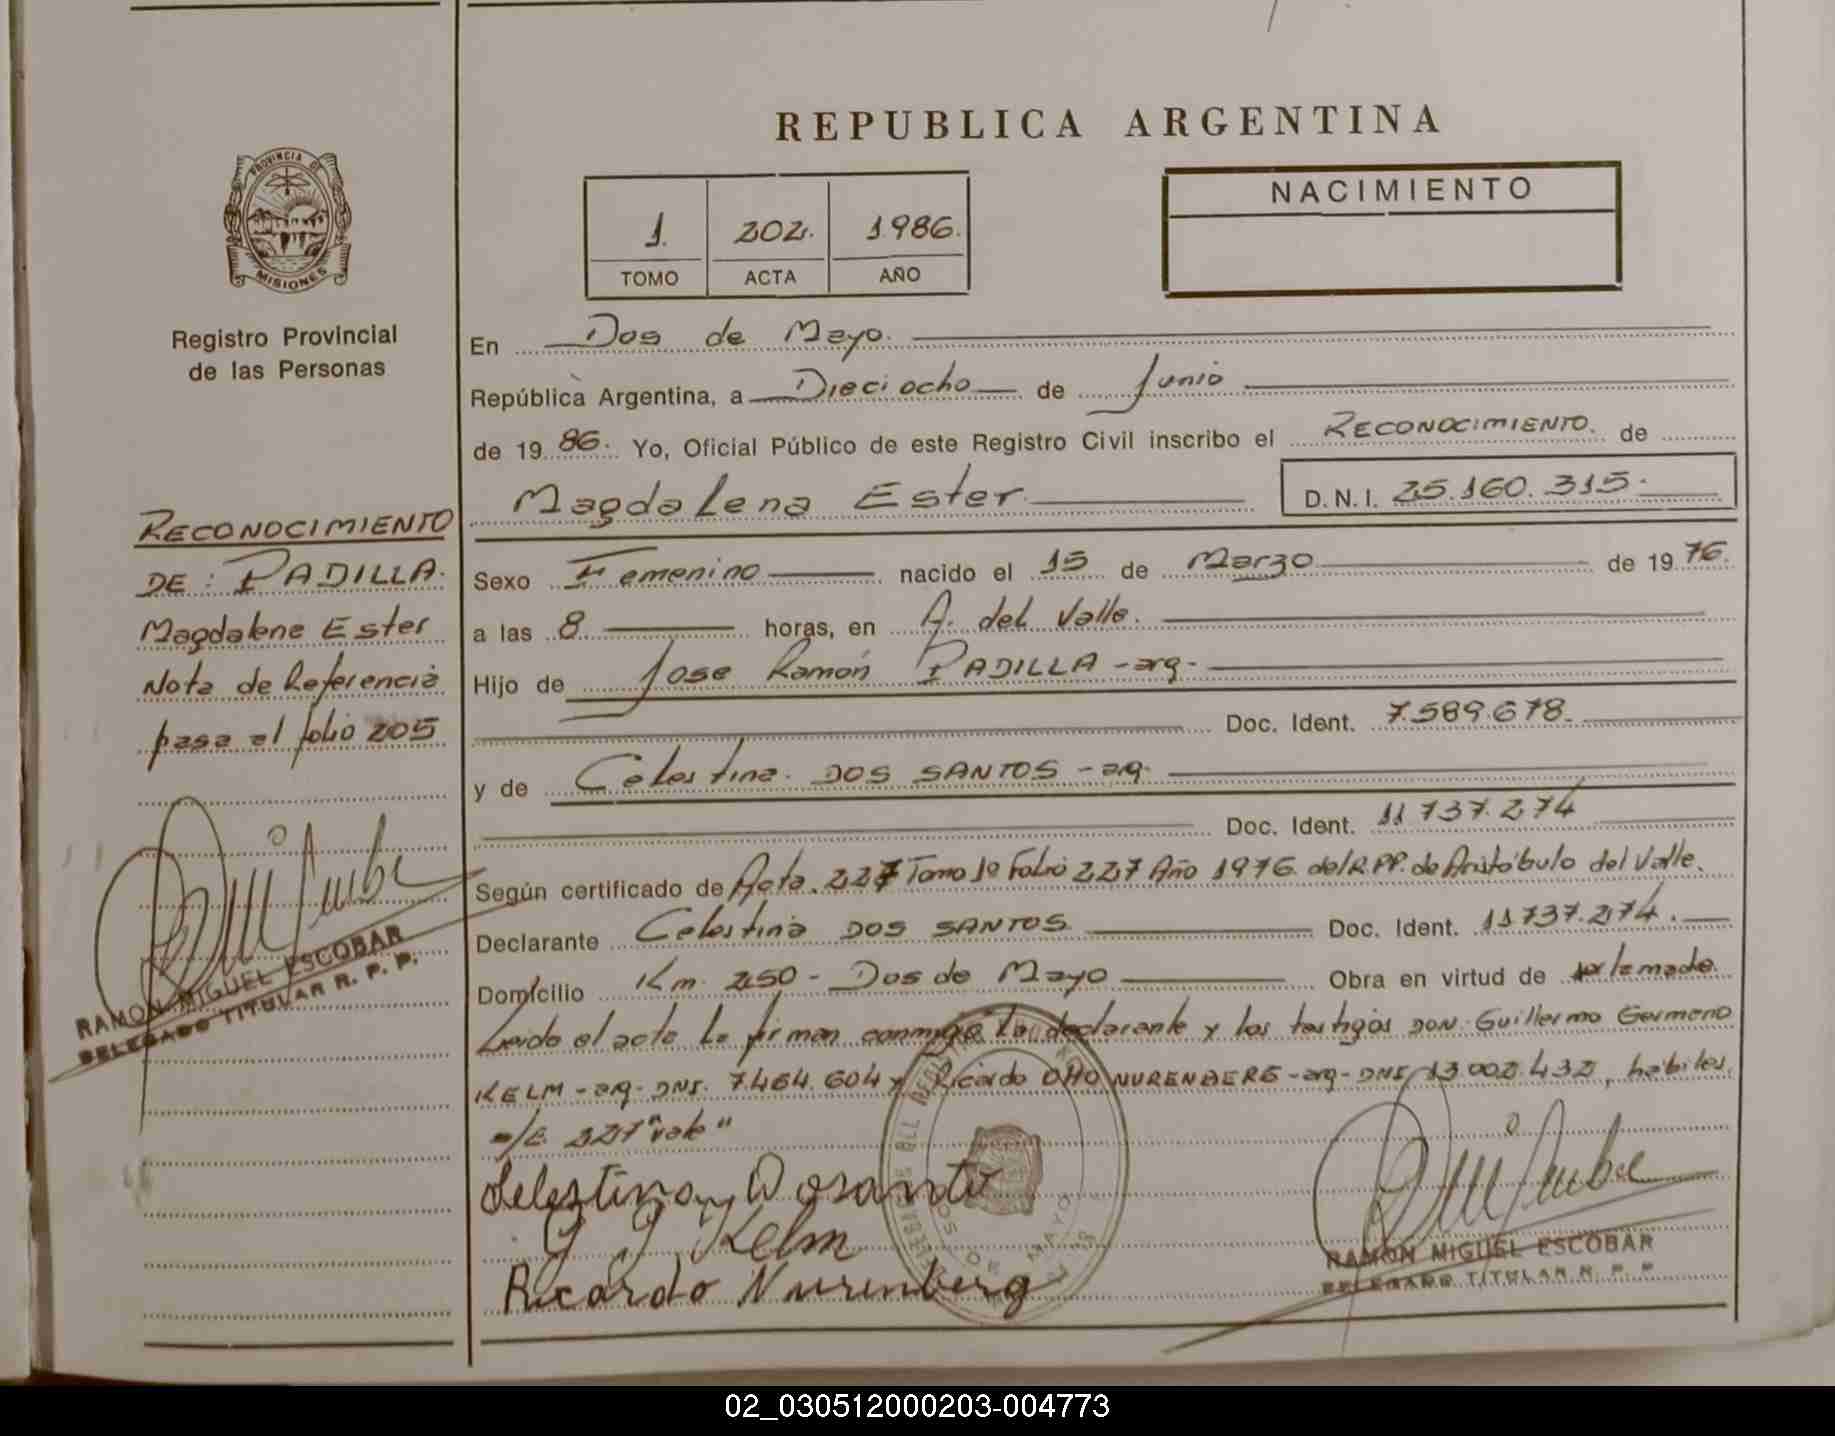 REPUBLICA ARGENTINA
PROVINCIA DE
MISIONES
Registro Provincial
de las Personas
1. 202. 1986.
TOMO ACTA AÑO
NACIMIENTO
En Dos de Mayo.
República Argentina, a Dieciocho de Junio
de 19 86. Yo, Oficial Público de este Registro Civil inscribo el RECONOCIMIENTO. de
Magdalena Ester. D.N.I. 25.160.315.
Sexo Femenino nacido el 15 de Marzo de 19 76.
a las 8 horas, en A. del Valle.
Hijo de Jose Ramón PADILLA -arg-
Doc. Ident. 7.589.678.
y de Celestina. DOS SANTOS -arg-
Doc. Ident. 11 737.274
Según certificado de Acta. 227 Tomo 1º Folio 227 Año 1976. del R.PP. de Aristóbulo del Valle.
Declarante Celestina DOS SANTOS Doc. Ident. 11 737.274.
Domicilio Km. 250 - Dos de Mayo Obra en virtud de
Leido el acta la firman conmigo la declarante y los testigos DON. Guillermo Germano
KELM -arg- DNI. 7.464.604 y Ricardo OttO NURENBERG -arg- DNI 13.002.432, habiles.
s/E. 227 "vale"
Selestina Dosanto
G G Kelm
Ricardo Nurenberg
RAMON MIGUEL ESCOBAR
DELEGADO TITULAR R. P. P.
RECONOCIMIENTO
DE: PADILLA.
Magdalene Ester
Nota de Referencia
pasa al folio 205
RAMON MIGUEL ESCOBAR
DELEGADO TITULAR R. P. P.
DOS DE MAYO
02_030512000203-004773